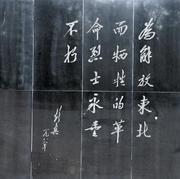 為解放東北
而牺牲的革
命烈士永垂
不朽
彭真